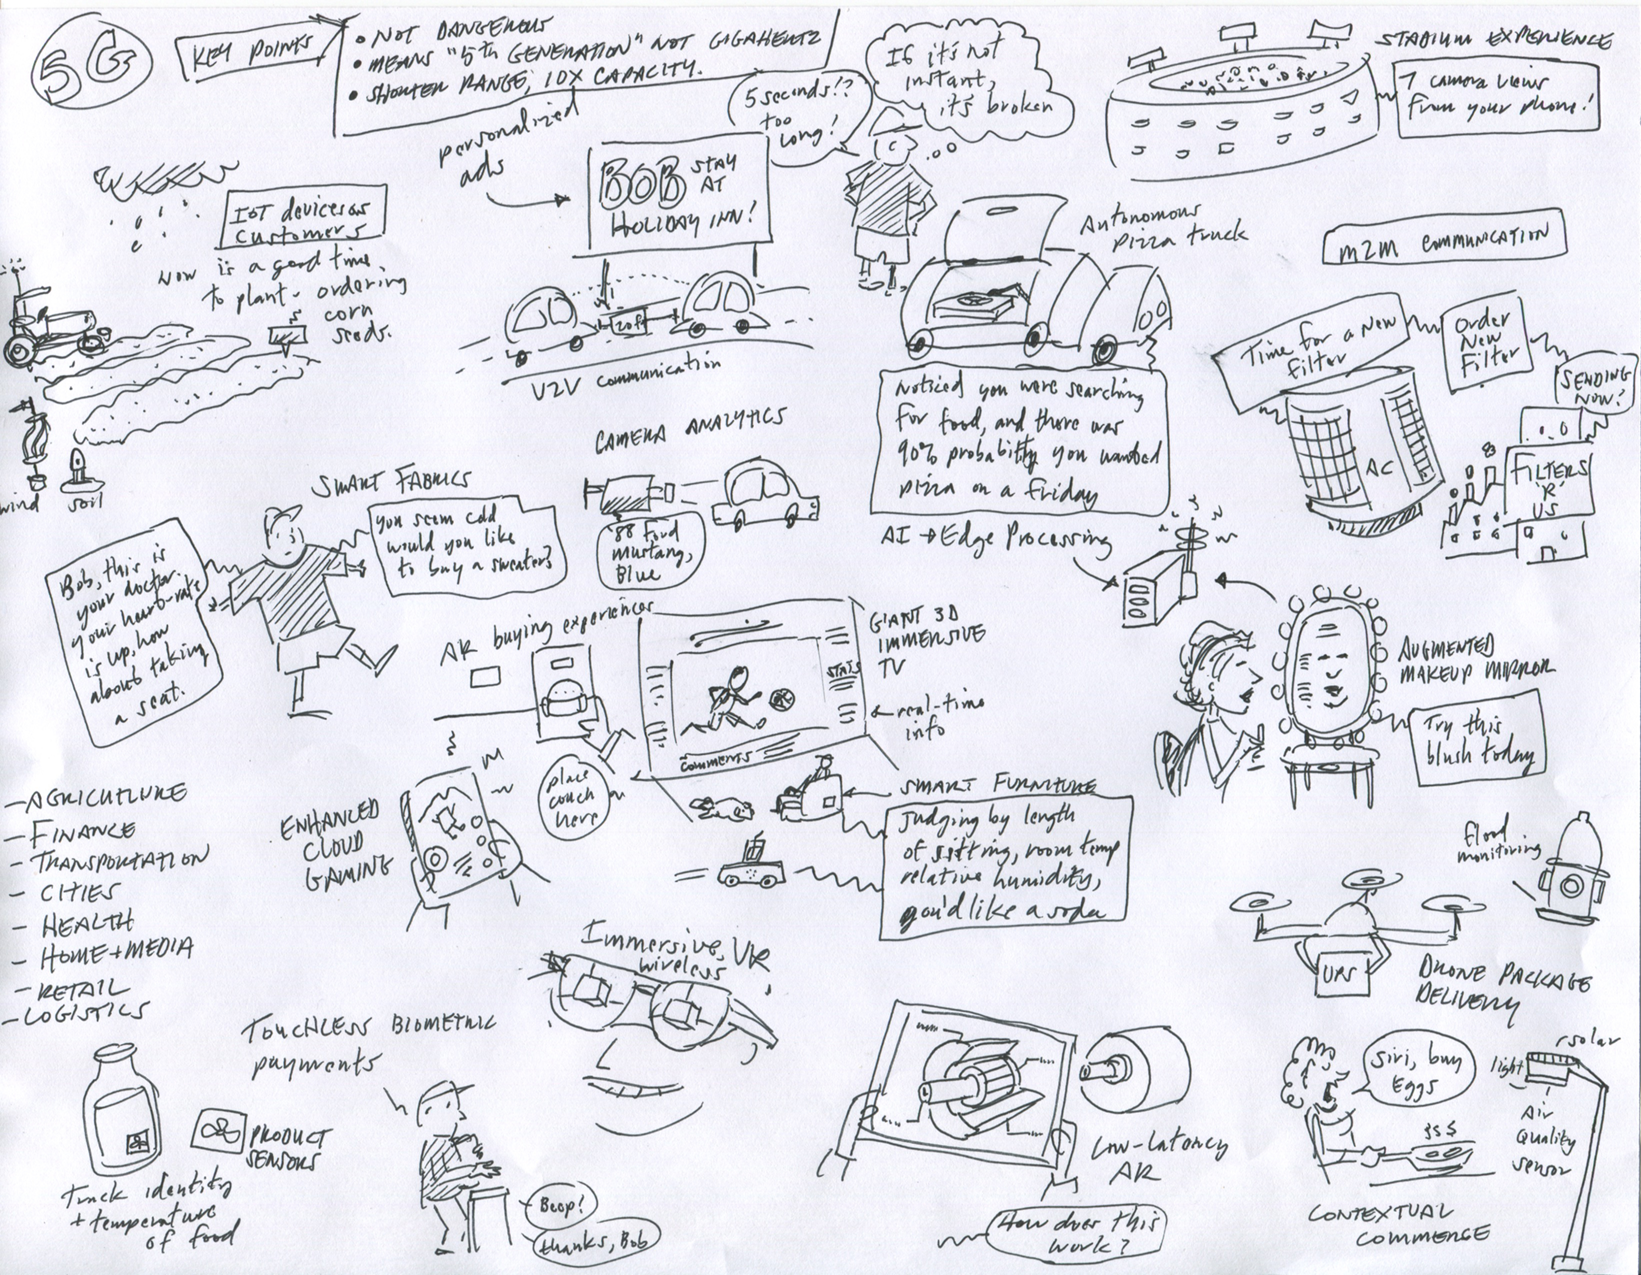 5G
KEY POINTS
• NOT DANGEROUS
• MEANS "5th GENERATION" NOT GIGAHERTZ
• SHORTER RANGE, 10X CAPACITY.
If it's not
instant,
it's broken
5 seconds!?
too
long!
STADIUM EXPERIENCE
7 camera views
from your phone!
personalized
ads
BOB STAY
AT
HOLIDAY INN!
IoT devices as
customers
Now is a good time
to plant - ordering
corn
seeds.
wind
soil
20ft
V2V communication
Autonomous
pizza truck
Noticed you were searching
for food, and there was
90% probability you wanted
pizza on a Friday
M2M COMMUNICATION
Time for a New
Filter
Order
New
Filter
SENDING
NOW!
AC
FILTERS
'R'
US
CAMERA ANALYTICS
'88 Ford
Mustang,
Blue
SMART FABRICS
you seem cold
would you like
to buy a sweater?
Bob, this is
your doctor.
your heart-rate
is up, how
about taking
a seat.
AI → Edge Processing
AR buying experiences
place
couch
here
GIANT 3D
IMMERSIVE
TV
STATS
← real-time
info
COMMENTS
AUGMENTED
MAKEUP MIRROR
Try this
blush today
- AGRICULTURE
- FINANCE
- TRANSPORTATION
- CITIES
- HEALTH
- HOME + MEDIA
- RETAIL
- LOGISTICS
ENHANCED
CLOUD
GAMING
SMART FURNITURE
Judging by length
of sitting, room temp
relative humidity,
you'd like a soda
flood
monitoring
UPS
DRONE PACKAGE
DELIVERY
Immersive,
wireless VR
TOUCHLESS BIOMETRIC
payments
Beep!
thanks, Bob
PRODUCT
SENSORS
Track identity
+ temperature
of food
LOW-LATENCY
AR
How does this
work?
Siri, buy
Eggs
$$$
CONTEXTUAL
COMMERCE
solar
light
Air
Quality
sensor